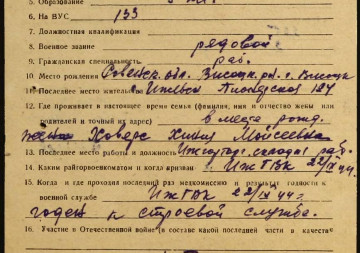 5. Образование
6. На ВУС 133
7. Должностная квалификация
8. Военное звание рядовой
9. Гражданская специальность раб.
10. Место рождения обл. с.
11. Последнее место жительства Ижевск 124
12. Где проживает в настоящее время семья (фамилия, имя и отчество жены или
родителей и точный их адрес) в месте рожд.
жена Ховрс Моисеевна
13. Последнее место работы и должность раб.
14. Каким райгорвоенкоматом и когда призван ИжГВК 22/IX 44 г.
15. Когда и где проходил последний раз медкомиссию и результат годности к
военной службе ИжГВК 22/IX 44 г.
годен к строевой службе.
16. Участие в Отечественной войне (в составе какой последней части в качестве